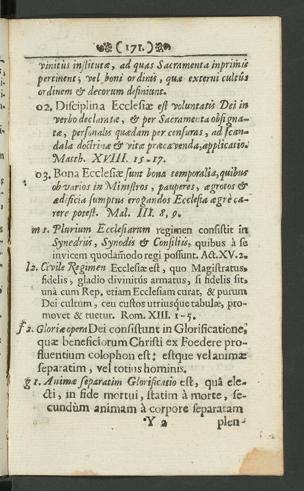 (171.)
vinitùs institutæ, ad quas Sacramenta inprimis
pertinent; vel boni ordinis, quæ externi cultûs
ordinem & decorum definiunt.
o2. Disciplina Ecclesiæ est voluntatis Dei in
verbo declaratæ, & per Sacramenta obsigna-
tæ, personalis quædam per censuras, ad scan-
dala doctrinæ & vitæ præcavenda, applicatio.
Matth. XVIII. 15-17.
o3. Bona Ecclesiæ sunt bona temporalia, quibus
ob varios in Ministros, pauperes, ægrotos &
ædificia sumptus erogandos Ecclesia ægrè ca-
rere potest. Mal. III. 8, 9.
m 2. Plurium Ecclesiarum regimen consistit in
Synedriis, Synodis & Consiliis, quibus à se
invicem quodammodo regi possunt. Act. XV. 2.
l2. Civile Regimen Ecclesiæ est, quo Magistratus
fidelis, gladio divinitùs armatus, si fidelis sit,
unà cum Rep, etiam Ecclesiam curat, & putum
Dei cultum, ceu custos utriusque tabulæ, pro-
movet & tuetur. Rom. XIII. 1-5.
f 2. Gloriæ opera Dei consistunt in Glorificatione,
quæ beneficiorum Christi ex Foedere pro-
fluentium colophon est; estque vel animæ
separatim, vel totius hominis.
g 1. Animæ separatim Glorificatio est, quâ ele-
cti, in fide mortui, statim à morte, se-
cundùm animam à corpore separatam
Y 2 plen-